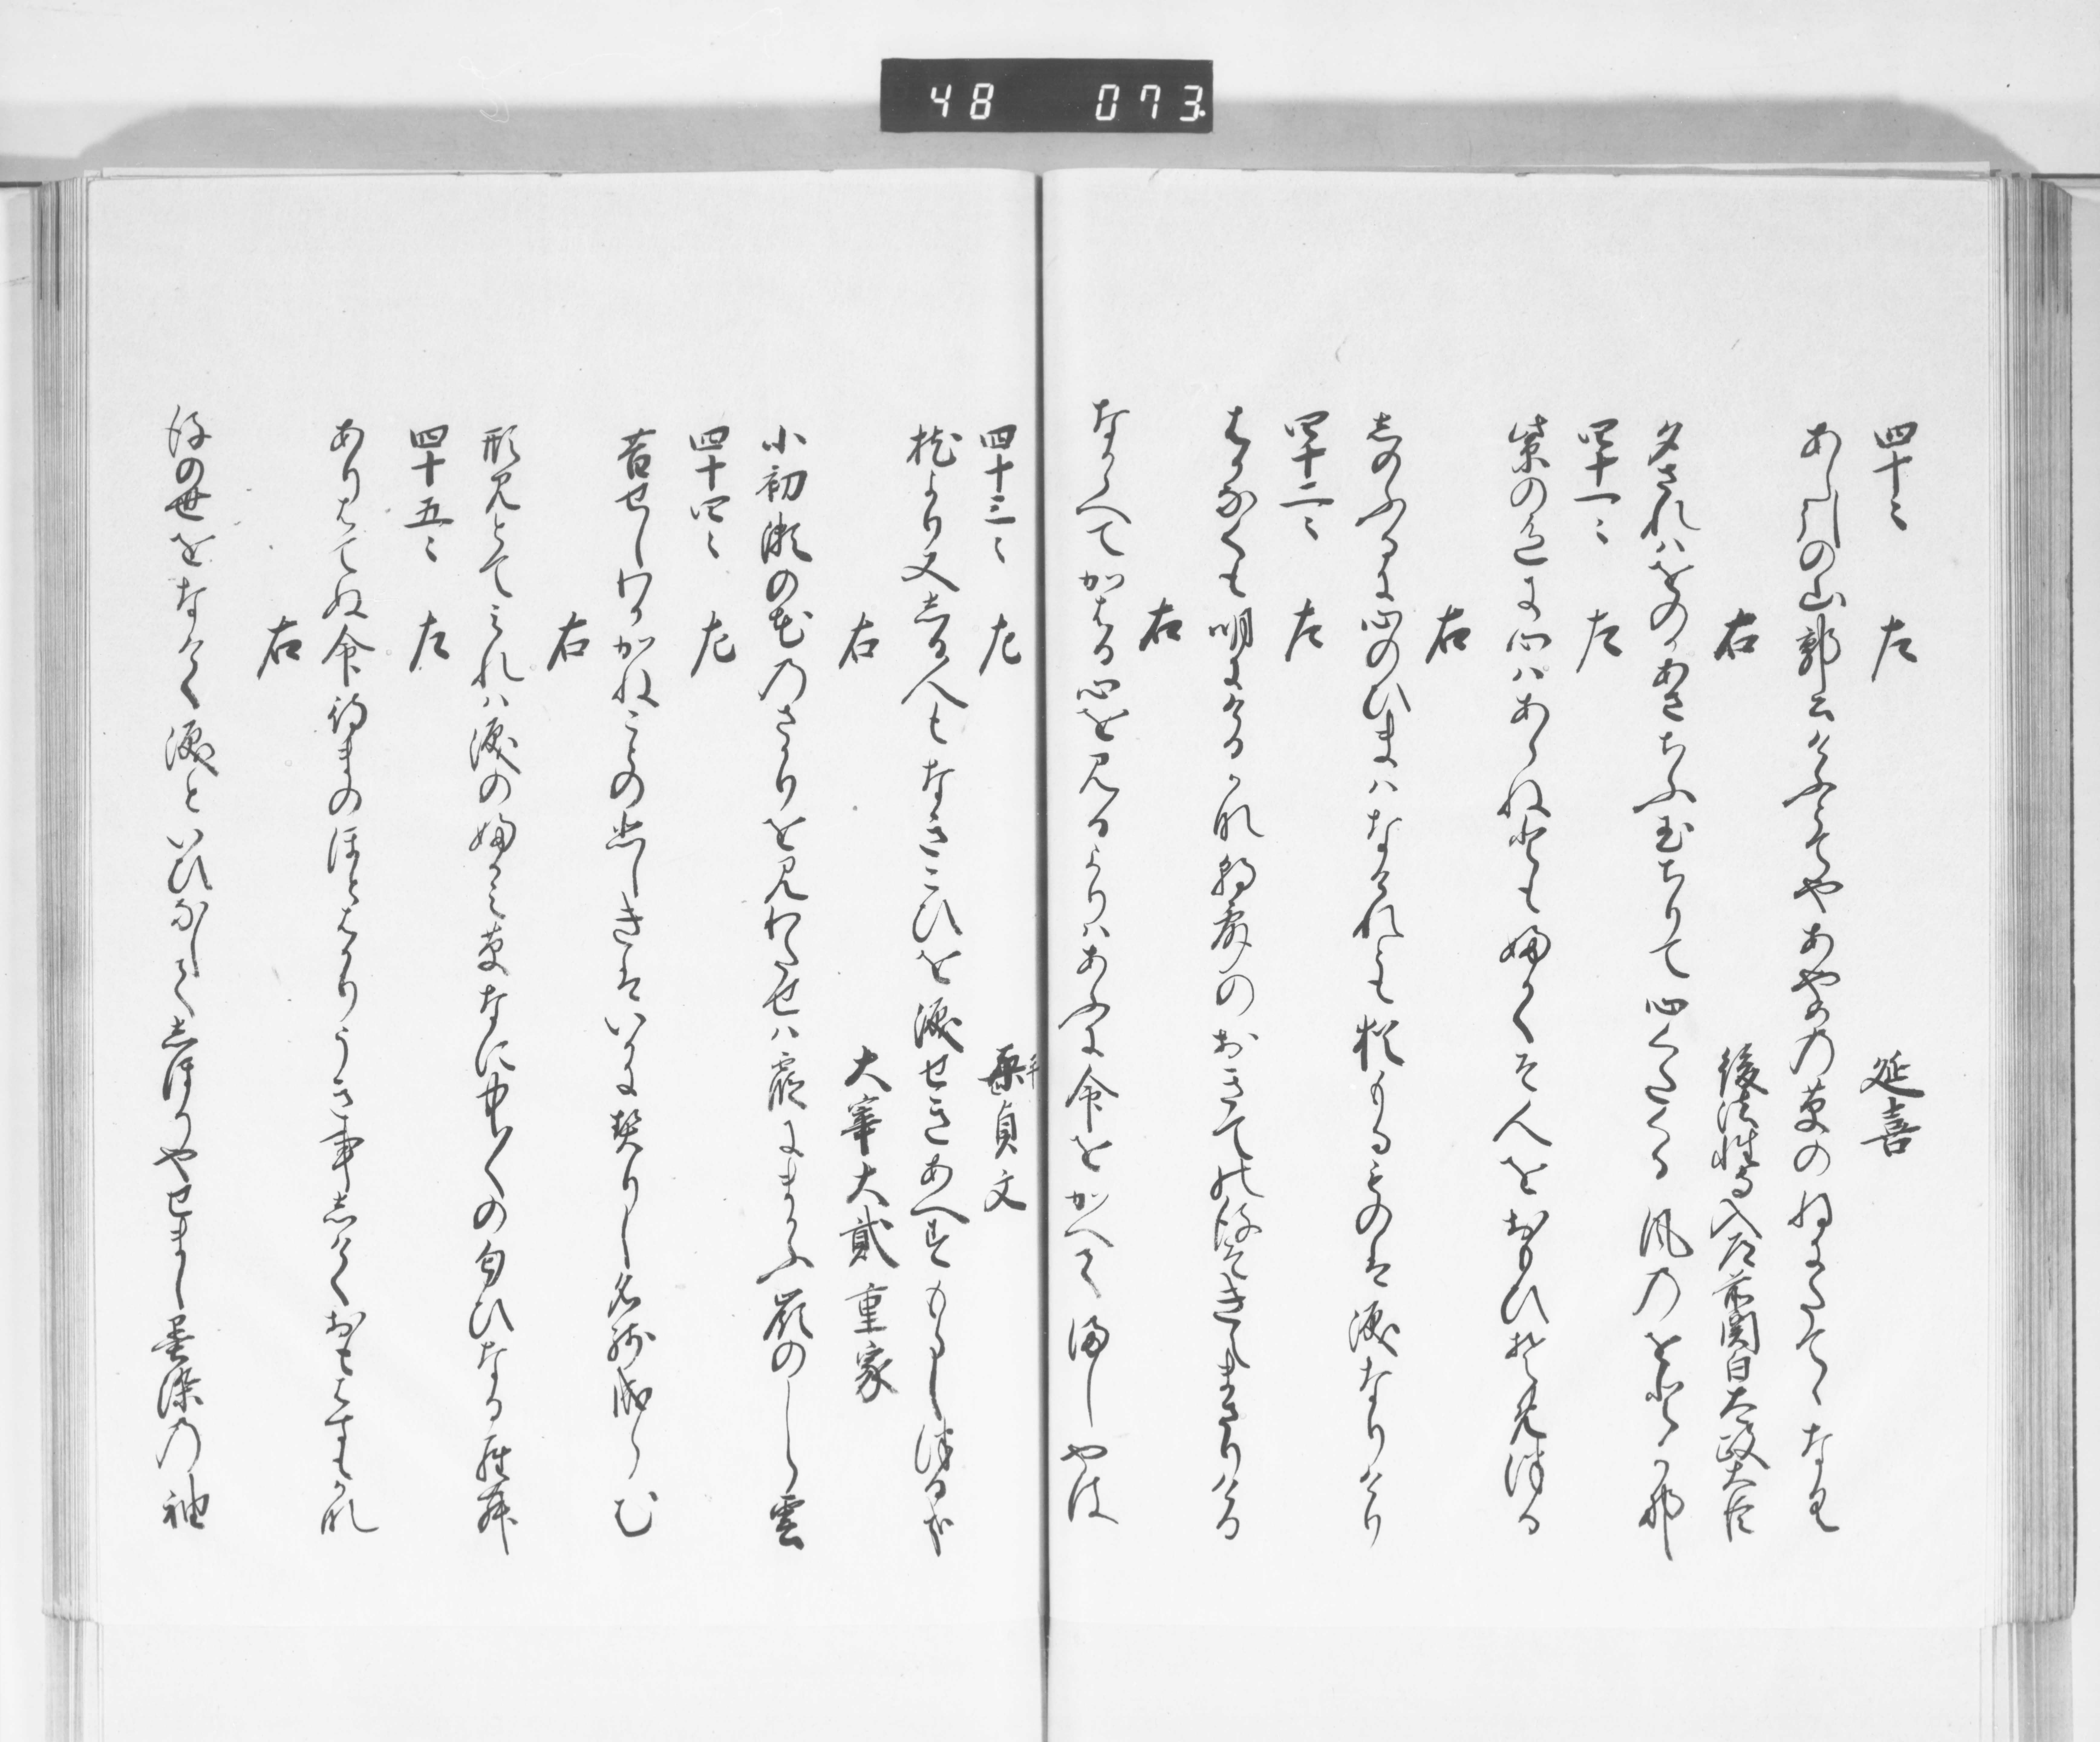 48 073
四十ミ 左 延喜
あし引の山郭公けふとてやあやめの草のねにたてゝなく
右 後法性寺入道前関白太政大臣
夕されハをのゝあさちふ玉ちりて心くたくる風のをとかな
四十一ミ 左
紫の色に心ハあらねとも婦かくそ人をおもひそめつる
右
しのふるに心のひまハなけれとも猶もるものは涙なりけり
四十二ミ 左
はかなくも明にけるかな朝露のおきての後そきえまさりける
右
なからへてかはる心を見るよりハあふに命をかへてましやは
四十三ミ 左 平貞文
枕より又しる人もなきこひを涙せきあへすもらしつるかな
右 大宰大貳重家
小初瀬の花のさかりを見わたせハ霞にまかふ嶺のしら雲
四十四ミ 左
昔せしわかかねことの悲しきはいかに契りし名残成らむ
右
形見とてみれハ涙の婦かみ草なに中〱の匂ひなるらん
四十五ミ 左
ありはてぬ命待まのほとはかりうき事しけくおもはすもかな
右
後の世をなけく涙といひなしてしほりやせまし墨染の袖